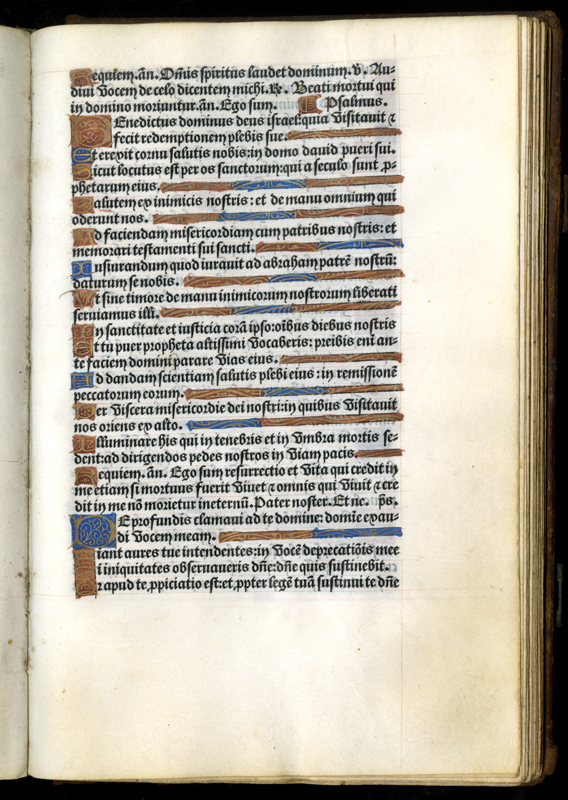 Requiem. añ. Om̃is spiritus laudet dominum. ℣. Au-
diui vocem de celo dicentem michi. ℟. Beati mortui qui
in domino moriuntur. añ. Ego sum. Psalmus.
BEnedictus dominus deus israel: quia visitauit ⁊
fecit redemptionem plebis sue.
Et erexit cornu salutis nobis: in domo dauid pueri sui.
Sicut locutus est per os sanctorum: qui a seculo sunt ꝓ-
phetarum eius.
Salutem ex inimicis nostris: et de manu omnium qui
oderunt nos.
Ad faciendam misericordiam cum patribus nostris: et
memorari testamenti sui sancti.
Iusiurandum quod iurauit ad abraham patrē nostrū:
daturum se nobis.
Vt sine timore de manu inimicorum nostrorum liberati
seruiamus illi.
In sanctitate et iusticia corā ipso: oĩbus diebus nostris
Et tu puer propheta altissimi vocaberis: preibis enĩ an-
te faciem domini parare vias eius.
Ad dandam scientiam salutis plebi eius: in remissionē
peccatorum eorum.
Per viscera misericordie dei nostri: in quibus visitauit
nos oriens ex alto.
Illuminare his qui in tenebris et in vmbra mortis se-
dent: ad dirigendos pedes nostros in viam pacis.
Requiem. añ. Ego sum resurrectio et vita qui credit in
me etiam si mortuus fuerit viuet ⁊ omnis qui viuit ⁊ cre
dit in me nō morietur ineternū. Pater noster. Et ne. p̄s.
DE profundis clamaui ad te domine: domĩe exau-
di vocem meam.
Fiant aures tue intendentes: in vocē deprecatiõis mee
Si iniquitates obseruaueris dñe: dñe quis sustinebit.
Quia apud te ꝓpiciatio est: et ꝓpter legē tuã sustinui te dñe